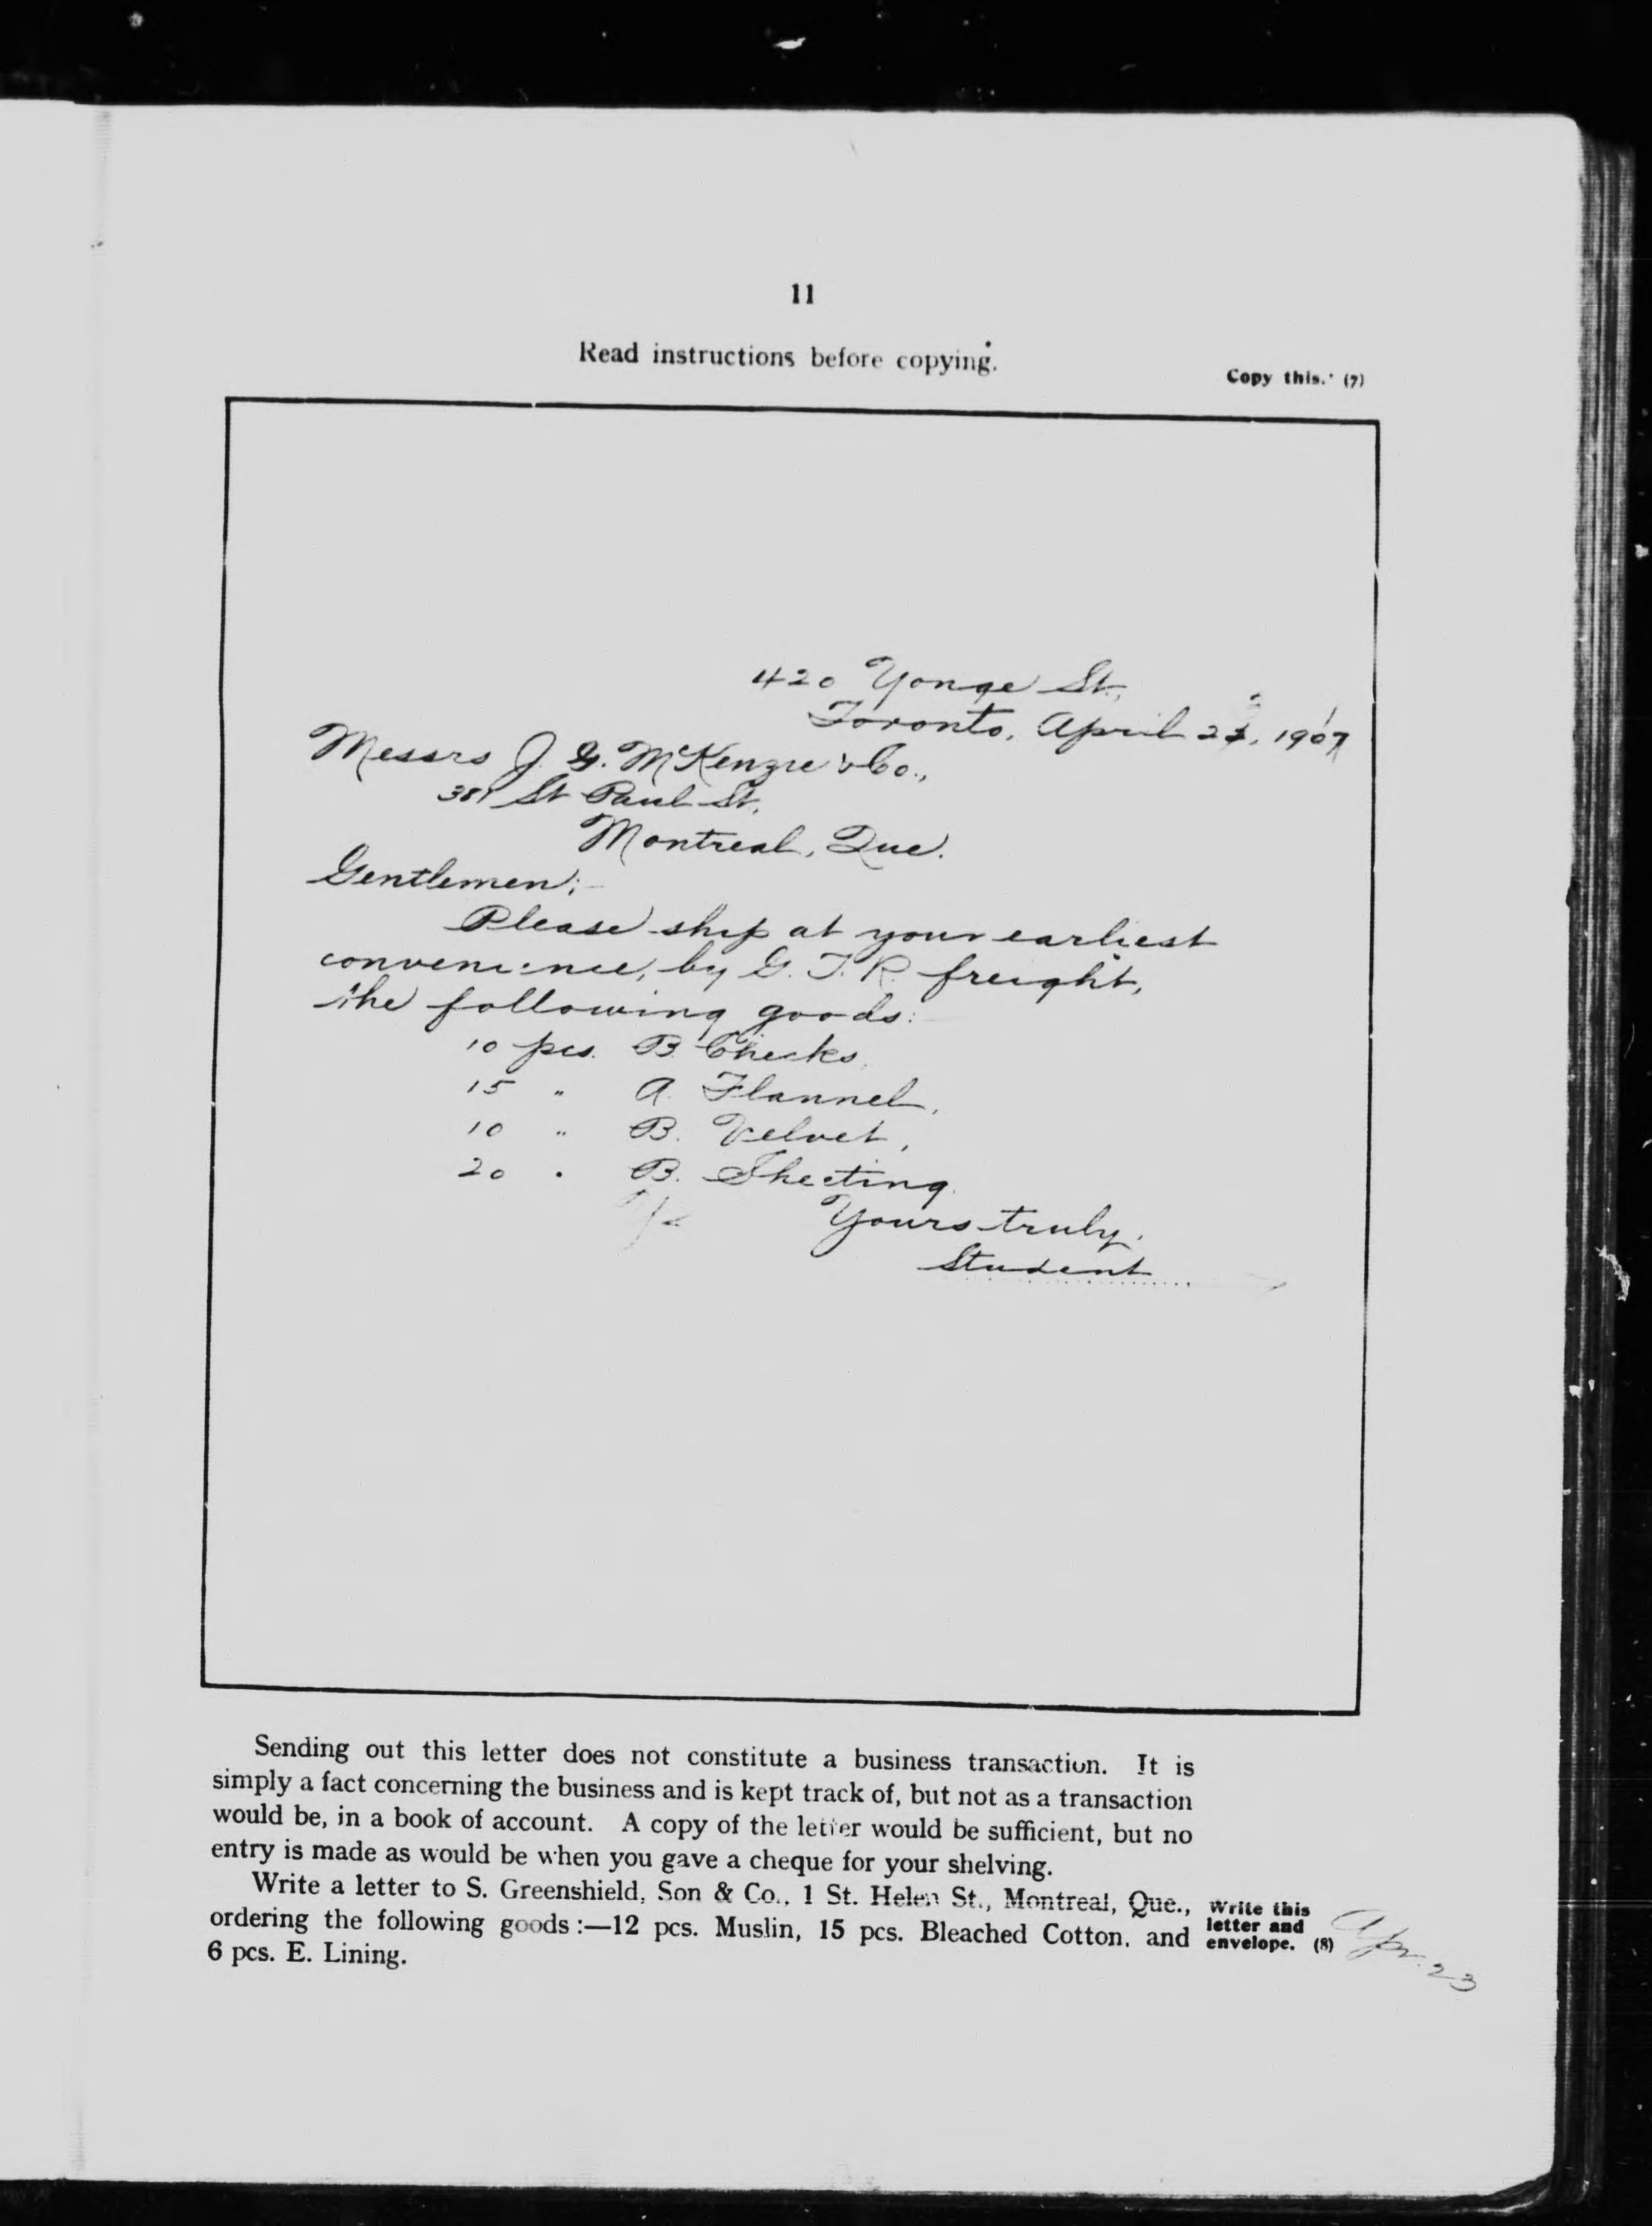 11
Read instructions before copying.
Copy this. (7)
420 Yonge St.,
Toronto, April 23, 1907
Messrs J. G. McKenzie & Co.,
381 St Paul St.,
Montreal, Que.
Gentlemen:-
Please ship at your earliest
convenience, by G. T. R. freight,
the following goods:
10 pcs. B. Checks,
15 " A. Flannel,
10 " B. Velvet,
20 " B. Sheeting.
Yours truly,
Student
Sending out this letter does not constitute a business transaction. It is
simply a fact concerning the business and is kept track of, but not as a transaction
would be, in a book of account. A copy of the letter would be sufficient, but no
entry is made as would be when you gave a cheque for your shelving.
Write a letter to S. Greenshield, Son & Co., 1 St. Helen St., Montreal, Que.,
ordering the following goods:—12 pcs. Muslin, 15 pcs. Bleached Cotton, and
6 pcs. E. Lining.
Write this
letter and
envelope. (8)
Apr. 23